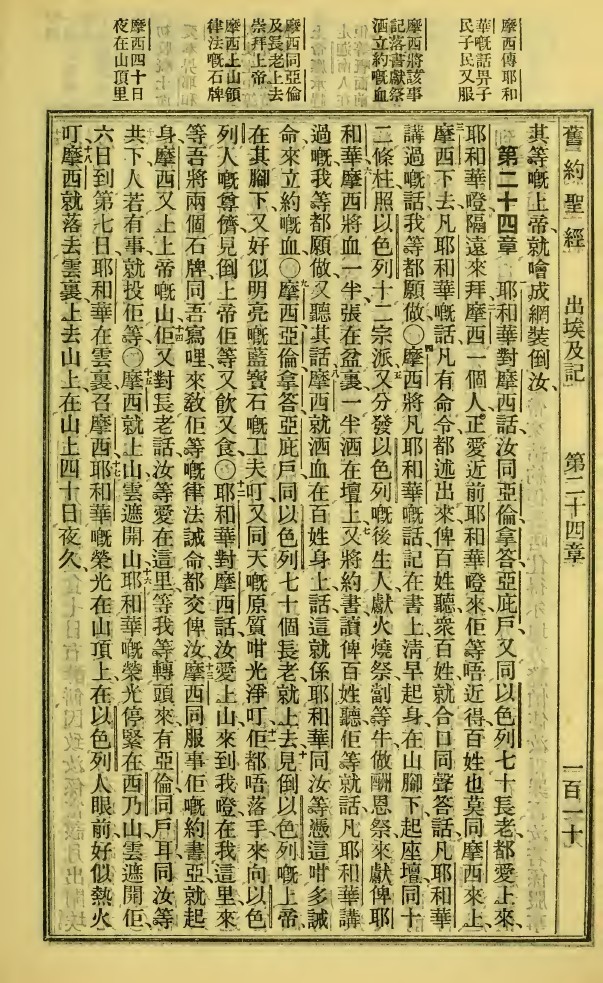 舊約聖經 出埃及記 第二十四章 一百一十
摩西傳耶和
華嘅話畀子
民子民又服
摩西將該事
記落書獻祭
洒立約嘅血
摩西同亞倫
及長老上去
崇拜上帝
摩西上山領
律法嘅石牌
摩西四十日
夜在山頂里
其等嘅上帝、就噲成網裝倒汝、
第二十四章 一耶和華對摩西話、汝同亞倫拿答亞庇戶、又同以色列七十長老、都愛上來、
耶和華嶝、隔遠來拜、二摩西一個人正愛近前耶和華嶝來、佢等唔近得、百姓也莫同摩西來上、
三摩西下去、凡耶和華嘅話、凡有命令、都述出來俾百姓聽、衆百姓就合口同聲答話、凡耶和華
講過嘅話、我等都願做、〇四摩西將凡耶和華嘅話、記在書上、清早起身、在山腳下起座壇、同十
二條柱、照以色列十二宗派、五又分發以色列嘅後生人、獻火燒祭、劏等牛做酬恩祭、來獻俾耶
和華、六摩西將血一半張在盆裏、一半洒在壇上、七又將約書讀俾百姓聽、佢等就話、凡耶和華講
過嘅、我等都願做、又聽其話、八摩西就洒血在百姓身上、話、這就係耶和華同汝等、憑這咁多誡
命來立約嘅血、〇九摩西亞倫拿答亞庇戶、同以色列七十個長老、就上去、十見倒以色列嘅上帝、
在其腳下、又好似明亮嘅藍寶石嘅工夫叮、又同天嘅原質咁光淨叮、十一佢都唔落手來向以色
列人嘅尊儕、見倒上帝、佢等又飲又食、〇十二耶和華對摩西話、汝愛上山來到我嶝、在我這里來
等、吾將兩個石牌、同吾寫哩來教佢等嘅律法誡命、都交俾汝、十三摩西同服事佢嘅約書亞就起
身、摩西又上上帝嘅山、十四佢又對長老話、汝等愛在這里等我等轉頭來、有亞倫同戶耳同汝等
共下、人若有事、就投佢等、〇十五摩西就上山、雲遮開山、十六耶和華嘅榮光、停緊在西乃山、雲遮開佢、
六日、到第七日、耶和華在雲裏召摩西、十七耶和華嘅榮光、在山頂上、在以色列人眼前、好似熱火
叮、十八摩西就落去雲裏、上去山上、在山上四十日夜久、